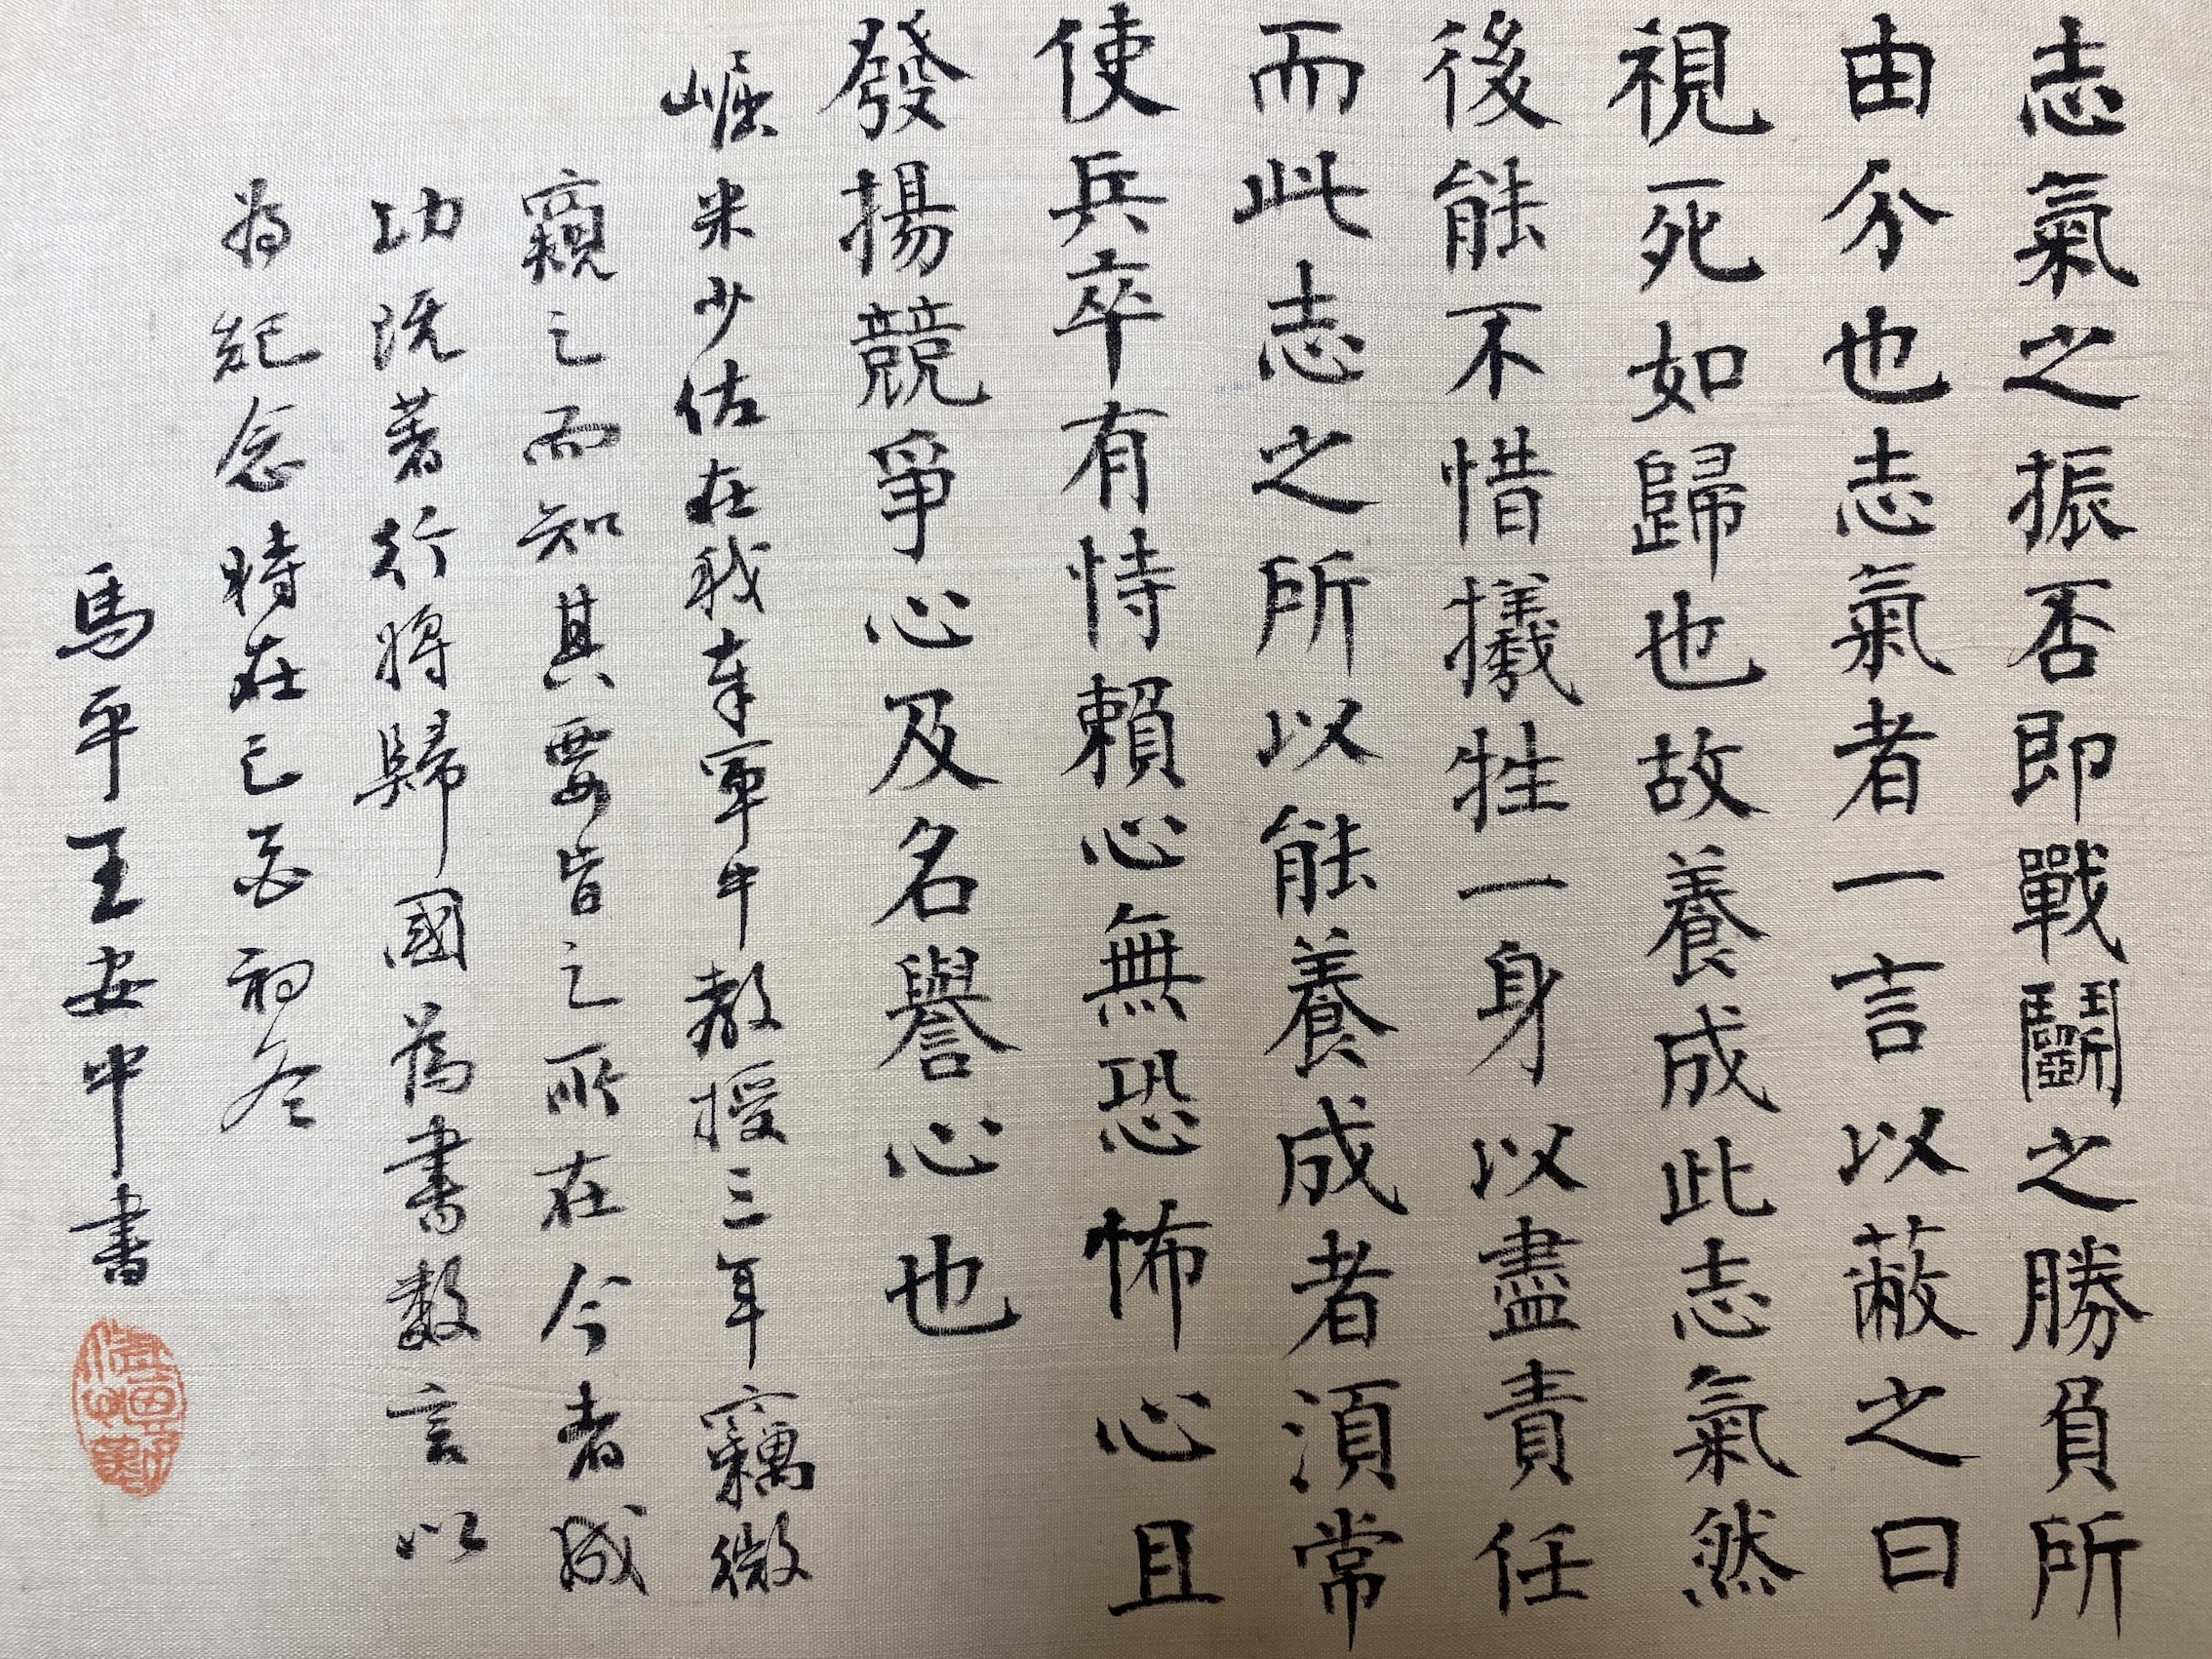 志氣之振否即戰鬭之勝負所
由分也志氣者一言以蔽之曰
視死如歸也故養成此志氣然
後能不惜犠牲一身以盡責任
而此志之所以能養成者須常
使兵卒有恃賴心無恐怖心且
發揚競爭心及名譽心也
崛米少佐在我奉軍中教授三年竊微
窺之而知其要旨之所在今者成
功既著行將歸國為書數言以
為紀念時在己酉初冬
馬平王安中書